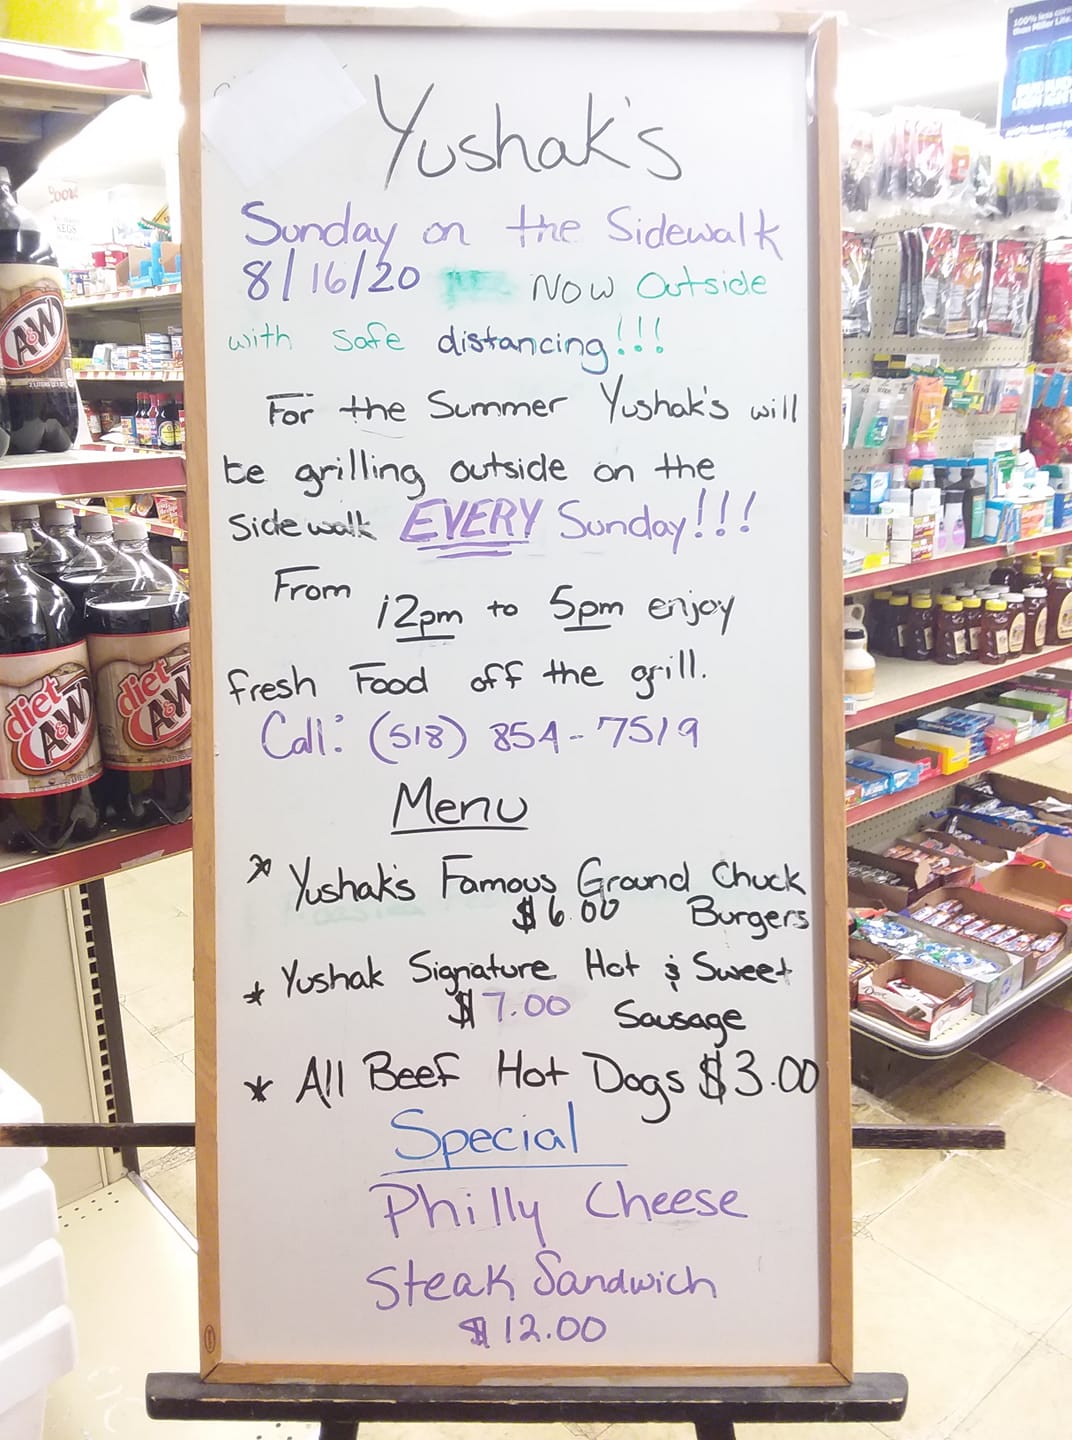 Yushak's
Sunday on the Sidewalk
8/16/20 Now Outside
with safe distancing!!!
For the Summer Yushak's will
be grilling outside on the
Sidewalk EVERY Sunday!!!
From 12pm to 5pm enjoy
fresh Food off the grill.
Call: (518) 854-7519
Menu
* Yushak's Famous Ground Chuck
$6.00 Burgers
* Yushak Signature Hot & Sweet
$7.00 Sausage
* All Beef Hot Dogs $3.00
Special
Philly Cheese
Steak Sandwich
$12.00
A&W
diet
A&W
diet
A&W
Dove